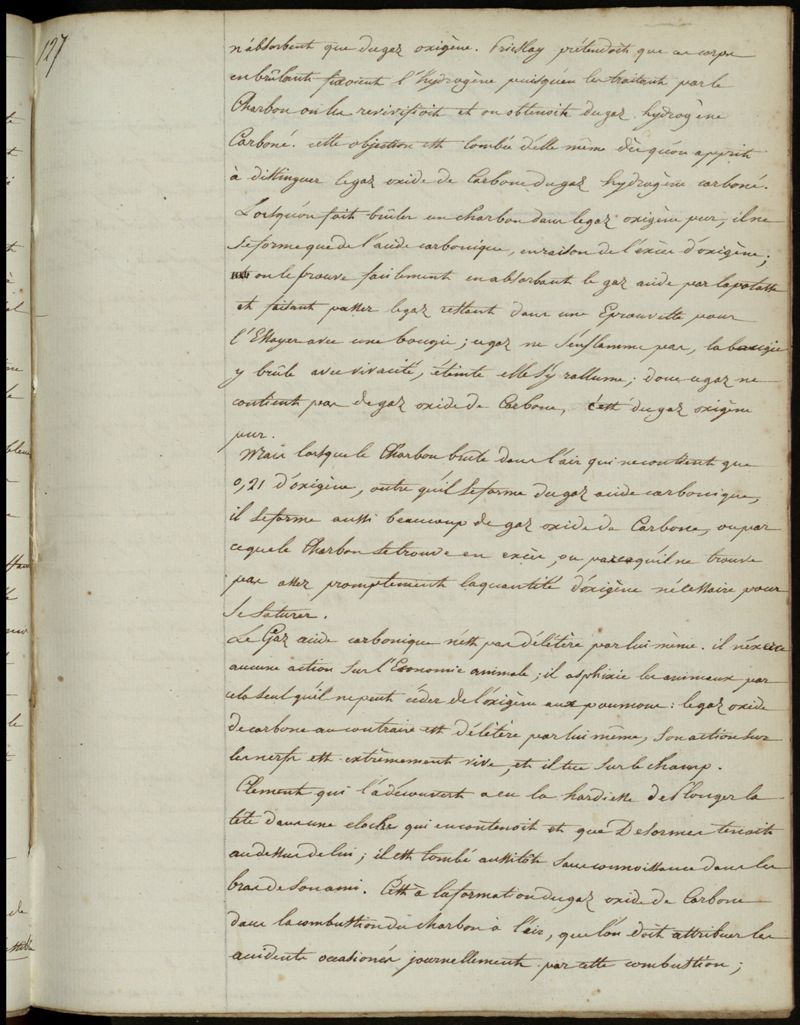 127
n'absorbent que du gaz oxigène. Priestlay prétendoit que ces corps
en brûlant fixoient l'hydrogène puisqu'en les traitant par le
Charbon on les revivifioit et on obtenoit du gaz hydrogène
Carboné. cette objection est tombée d'elle même dès qu'on apprit
à distinguer le gaz oxide de Carbone du gaz hydrogène carboné.
Lorsqu'on fait brûler un charbon dans le gaz oxigène pur, il ne
se forme que de l'acide carbonique, en raison de l'excès d'oxigène;
on le prouve facilement en absorbant le gaz acide par la potasse
et faisant passer le gaz restant dans une Eprouvette pour
l'Essayer avec une bougie; ce gaz ne s'enflamme pas, la bougie
y brûle avec vivacité, éteinte elle s'y rallume; donc ce gaz ne
contient pas de gaz oxide de Carbone, c'est du gaz oxigène
pur.
Mais lorsque le Charbon brule dans l'air qui ne contient que
0,21 d'oxigène, outre qu'il se forme du gaz acide carbonique,
il se forme aussi beaucoup de gaz oxide de Carbone, ou par
ce que le Charbon se trouve en excès, ou parce qu'il ne trouve
pas assez promptement la quantité d'oxigène nécessaire pour
se saturer.
Le Gaz acide carbonique n'est pas délétère par lui même. il n'exerce
aucune action sur l'Economie animale; il asphixie les animaux par
cela seul qu'il ne peut céder de l'oxigène aux poumons: le gaz oxide
de carbone au contraire est délétère par lui même, son action sur
les nerfs est extrêmement vive, et il tue sur le champ.
Clement qui l'a découvert a eu la hardiesse de Plonger la
tête dans une cloche qui en contenoit et que Desormes tenoit
au dessus de lui; il est tombé aussitôt sans connoissance dans les
bras de son ami. C'est à la formation du gaz oxide de Carbone
dans la combustion du charbon à l'air, que l'on doit attribuer les
accidents occasionés journellement par cette combustion;